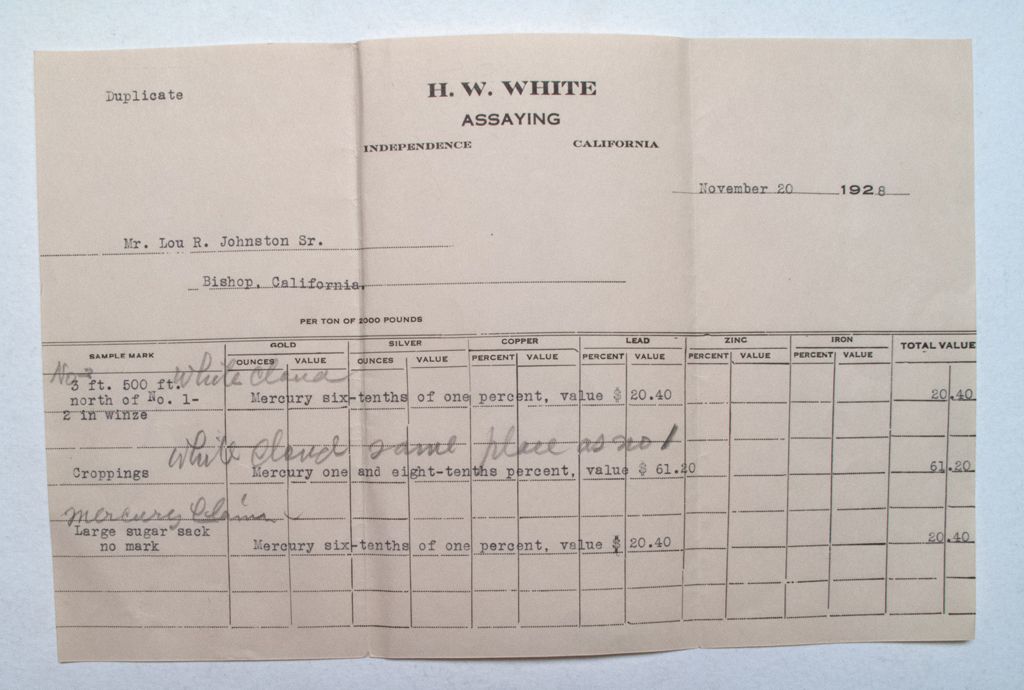 Duplicate
H. W. WHITE
ASSAYING
INDEPENDENCE CALIFORNIA
November 20 1928
Mr. Lou R. Johnston Sr.
Bishop, California.
PER TON OF 2000 POUNDS
SAMPLE MARK GOLD SILVER COPPER LEAD ZINC IRON TOTAL VALUE
OUNCES VALUE OUNCES VALUE PERCENT VALUE PERCENT VALUE PERCENT VALUE PERCENT VALUE
White Cloud
3 ft. 500 ft.
north of No. 1- Mercury six-tenths of one percent, value $ 20.40 20.40
2 in winze
White Cloud same place as no 1
Croppings Mercury one and eight-tenths percent, value $ 61.20 61.20
Mercury Claim
Large sugar sack
no mark Mercury six-tenths of one percent, value $ 20.40 20.40